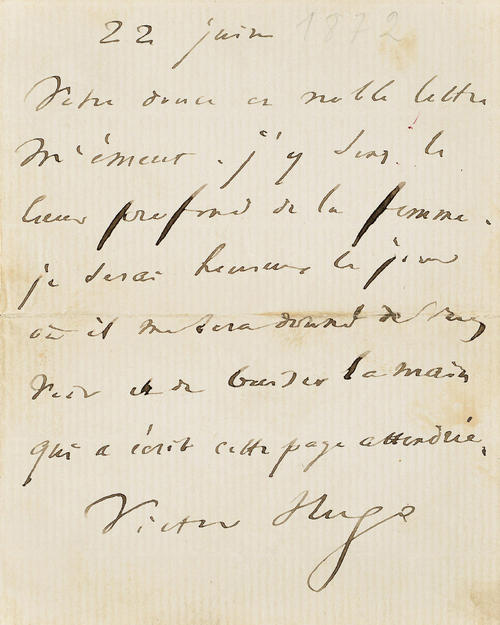 22 juin 1872
Votre douce et noble lettre
m'émeut. j'y sens le
cœur profond de la femme.
je serai heureux le jour
où il me sera donné de vous
voir et de baiser la main
qui a écrit cette page attendrie.
Victor Hugo